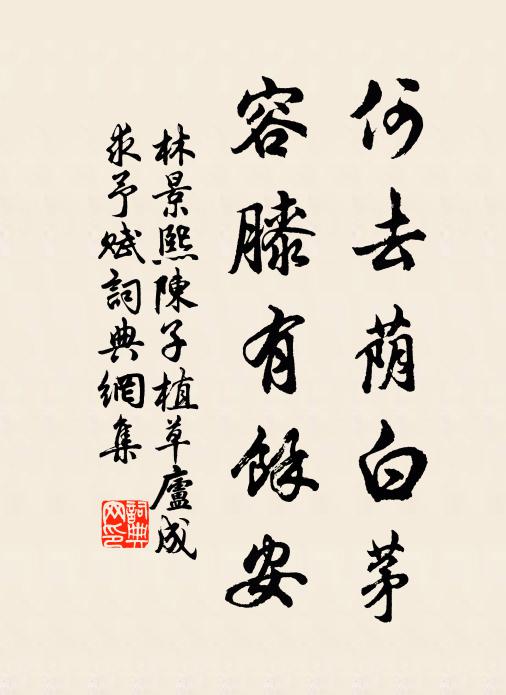 何去荫白茅
容膝有餘安
林景熙陳子植草廬成
求予賦詞典網集
詞典网印